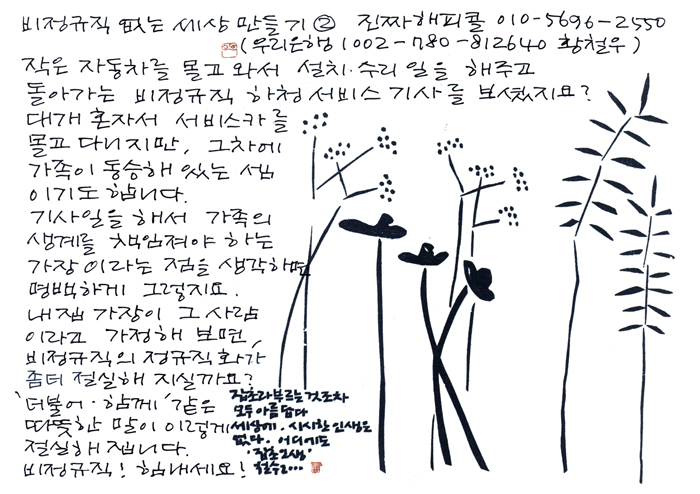 비정규직 없는 세상 만들기② 진짜해피콜 010-5696-2550
(우리은행 1002-780-812640 황철우)
작은 자동차를 몰고 와서 설치·수리 일을 해주고
돌아가는 비정규직 하청 서비스 기사를 보셨지요?
대개 혼자서 서비스카를
몰고 다니지만, 그 차에
가족이 동승해 있는 셈
이기도 합니다.
기사일을 해서 가족의
생계를 책임져야 하는
가장이라는 점을 생각하면
명백하게 그렇지요.
내 집 가장이 그 사람
이라고 가정해 보면,
비정규직의 정규직화가,
좀더 절실해 지실까요?
'더불어·함께' 같은
따뜻한 말이 이렇게
절실해집니다.
비정규직! 힘내세요!
잡초라 부르는 것조차
모두 아름답다
세상에, 시시한 인생은
없다. 어디에도
'잡초인생'
철수...